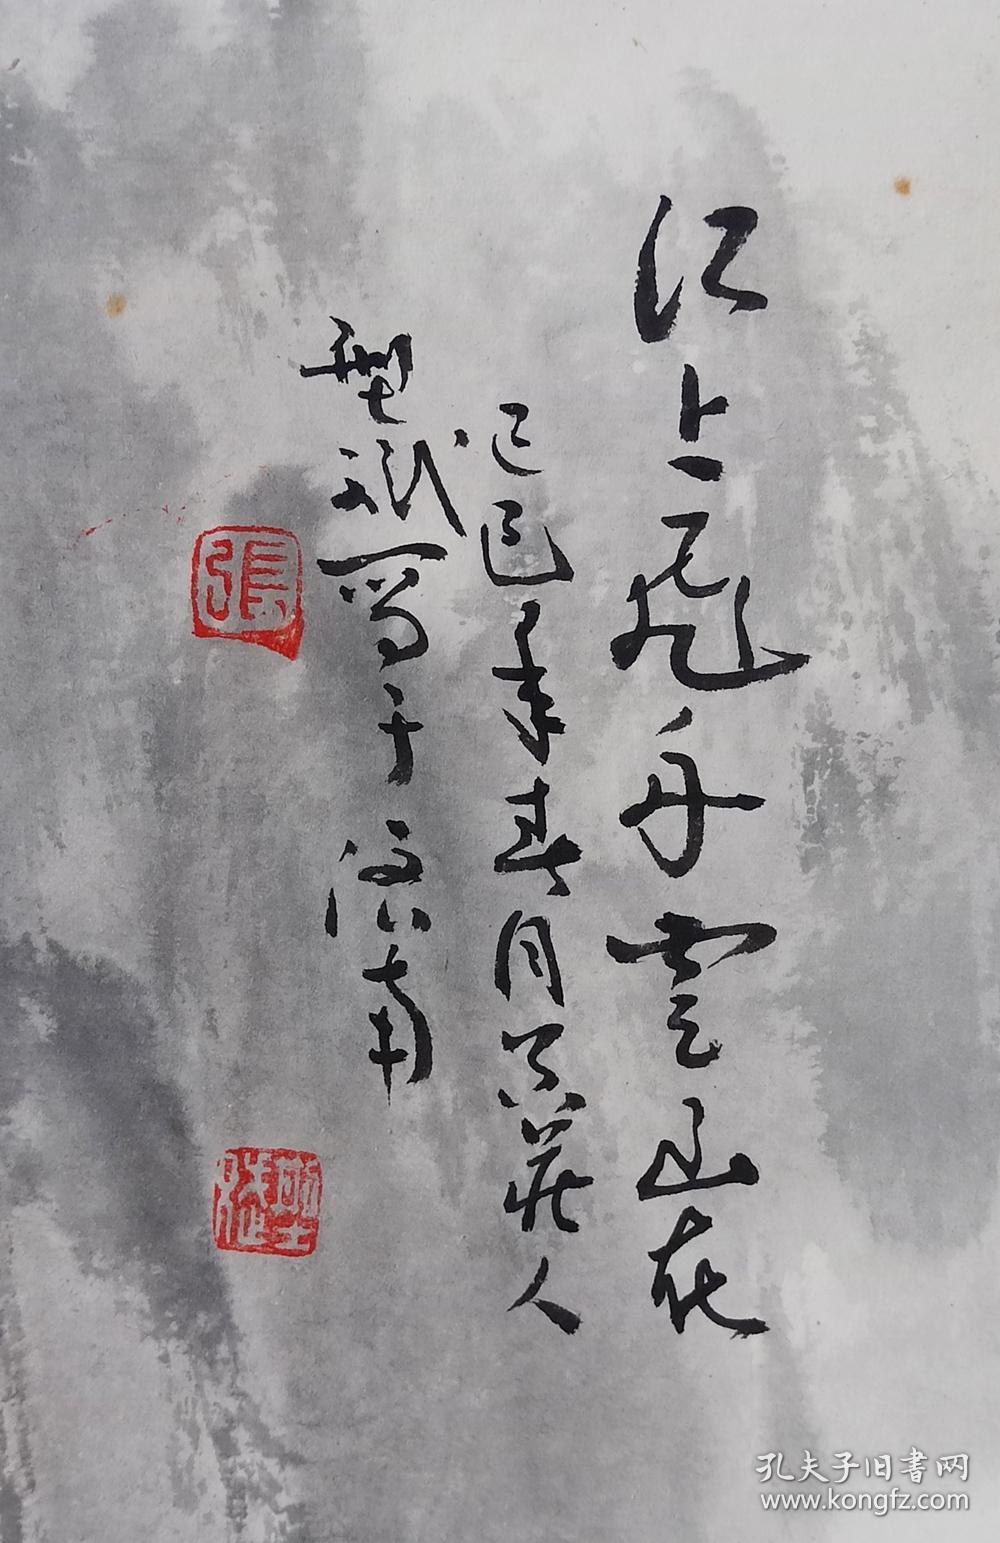 江上飛舟雲山在
己巳年春月莊人
型斌寫于濟南
張
孔夫子旧書网
www.kongfz.com